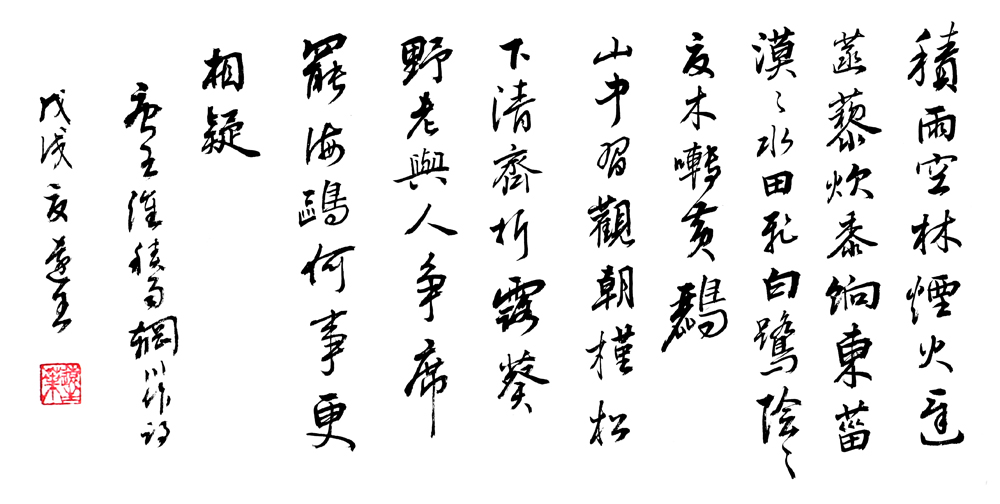 積雨空林煙火遲
蒸藜炊黍餉東菑
漠〻水田飛白鷺陰〻
夏木囀黃鸝
山中習觀朝槿松
下清齋折露葵
野老與人争席
罷海鷗何事更
相疑
唐王維積雨輞川作詩
戊戌夏